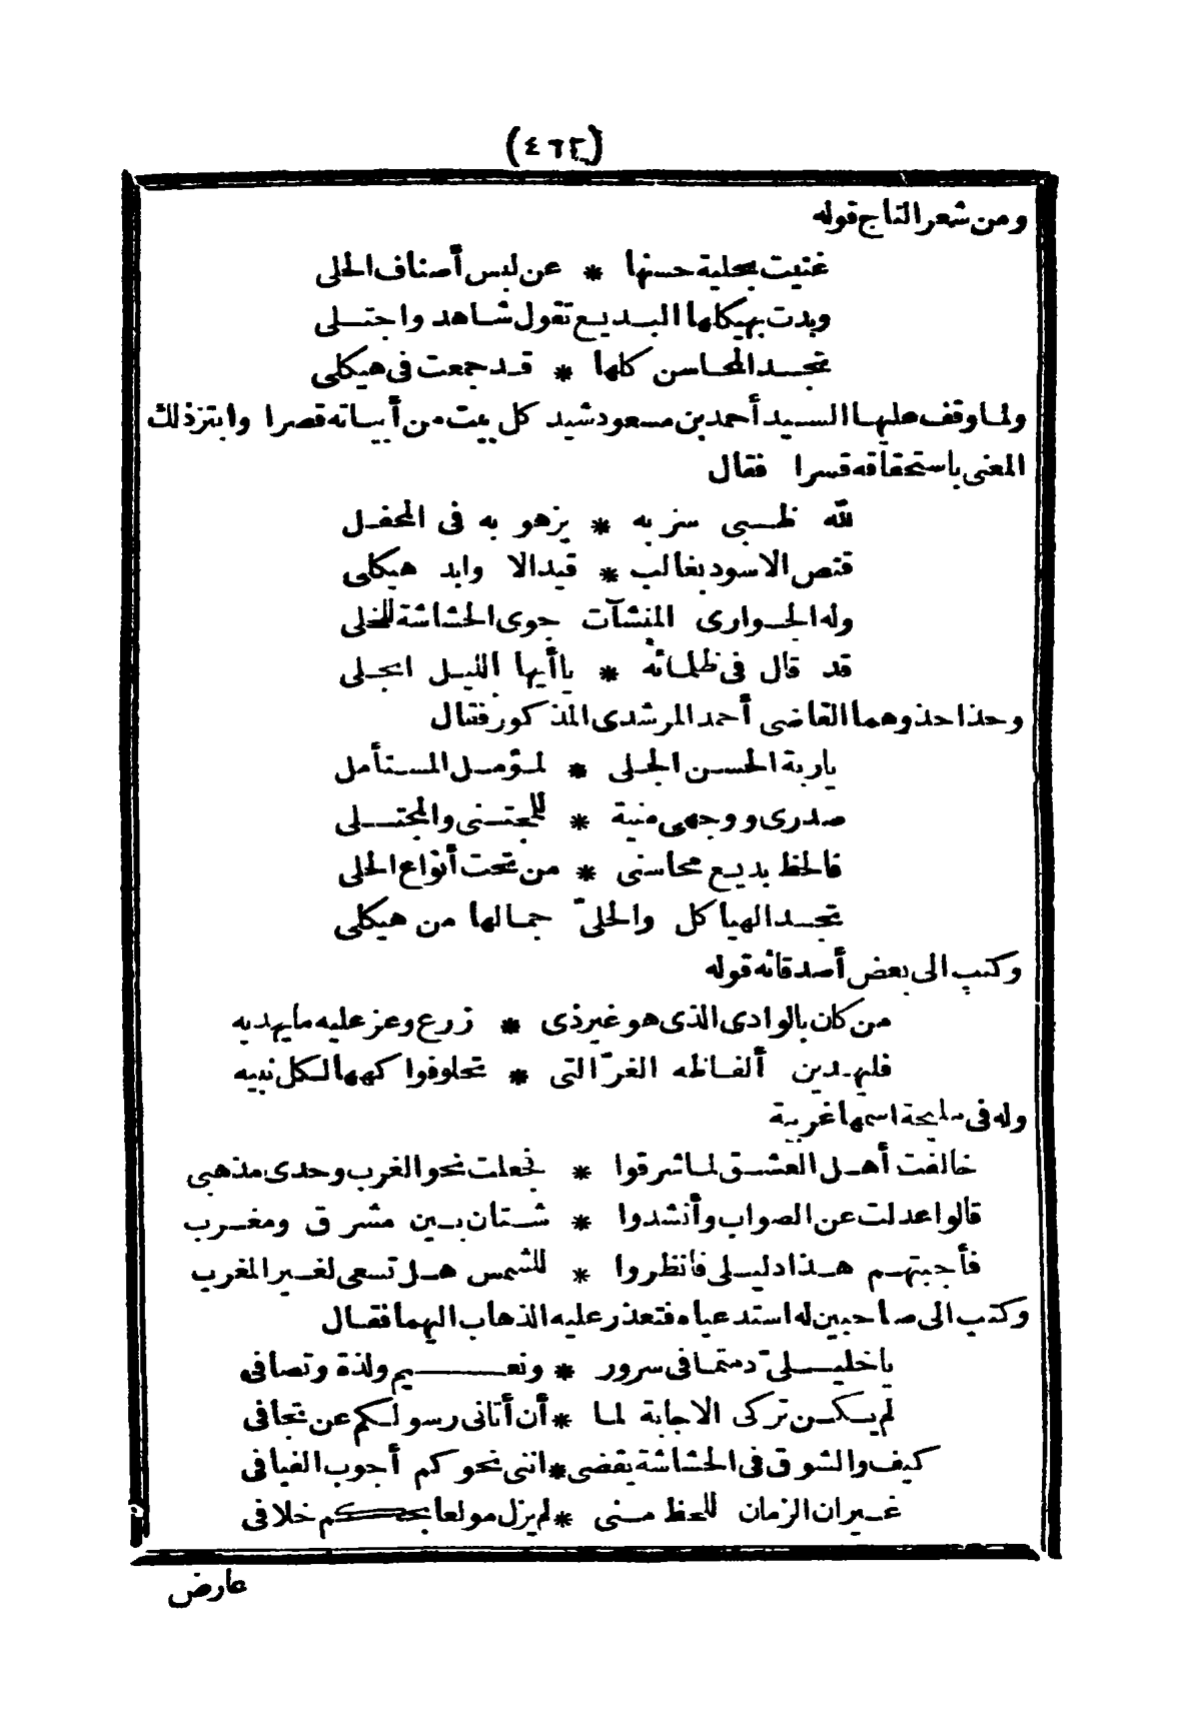 (٤٦٢)
ومن شعر التاج قوله
غنيت بحلية حسنها * عن لبس أصناف الحلى
وبدت بهيكلها البديع تقول شاهد واجتلى
تجد المحاسن كلها * قد جمعت فى هيكلى
ولما وقف عليها السيد أحمد بن مسعود شيد كل بيت من أبياته قصرا وابتز ذلك
المعنى باستحقاقه قسرا فقال
لله ظبى سربه * يزهو به فى المحفل
قنص الاسود بغالب * قيد الاوابد هيكلى
وله الجوارى المنشآت جوى الحشاشة للخلى
قد قال فى ظلمائه * ياأيها الليل انجلى
وحذا حذوهما القاضى أحمد المرشدى المذكور فقال
ياربة الحسن الجلى * لمؤمل المستأمل
صدرى ووجهى منية * للمجتنى والمجتلى
فالحظ بديع محاسنى * من تحت أنواع الحلى
تجد الهياكل والحلىّ جمالها من هيكلى
وكتب الى بعض أصدقائه قوله
من كان بالوادى الذى هو غير ذى * زرع وعز عليه ما يهديه
فليهدين ألفاظه الغرّ التى * تحلو فواكهها لكل نبيه
وله فى مليحة اسمها غربية
خالفت أهل العشق لما شرقوا * فجعلت نحو الغرب وحدى مذهبى
قالوا عدلت عن الصواب وأنشدوا * شتان بين مشرق ومغرب
فأجبتهم هذا دليلى فانظروا * للشمس هل تسعى لغير المغرب
وكتب الى صاحبين له استدعياه فتعذر عليه الذهاب اليهما فقال
ياخليلىّ دمتما فى سرور * ونعيم ولذة وتصافى
لم يكن تركى الاجابة لما * أن أتانى رسولكم عن تجافى
كيف والشوق فى الحشاشة يقضى * اننى نحوكم أجوب الفيافى
غير ان الزمان للحظ منى * لم يزل مولعا بحكم خلافى
عارض